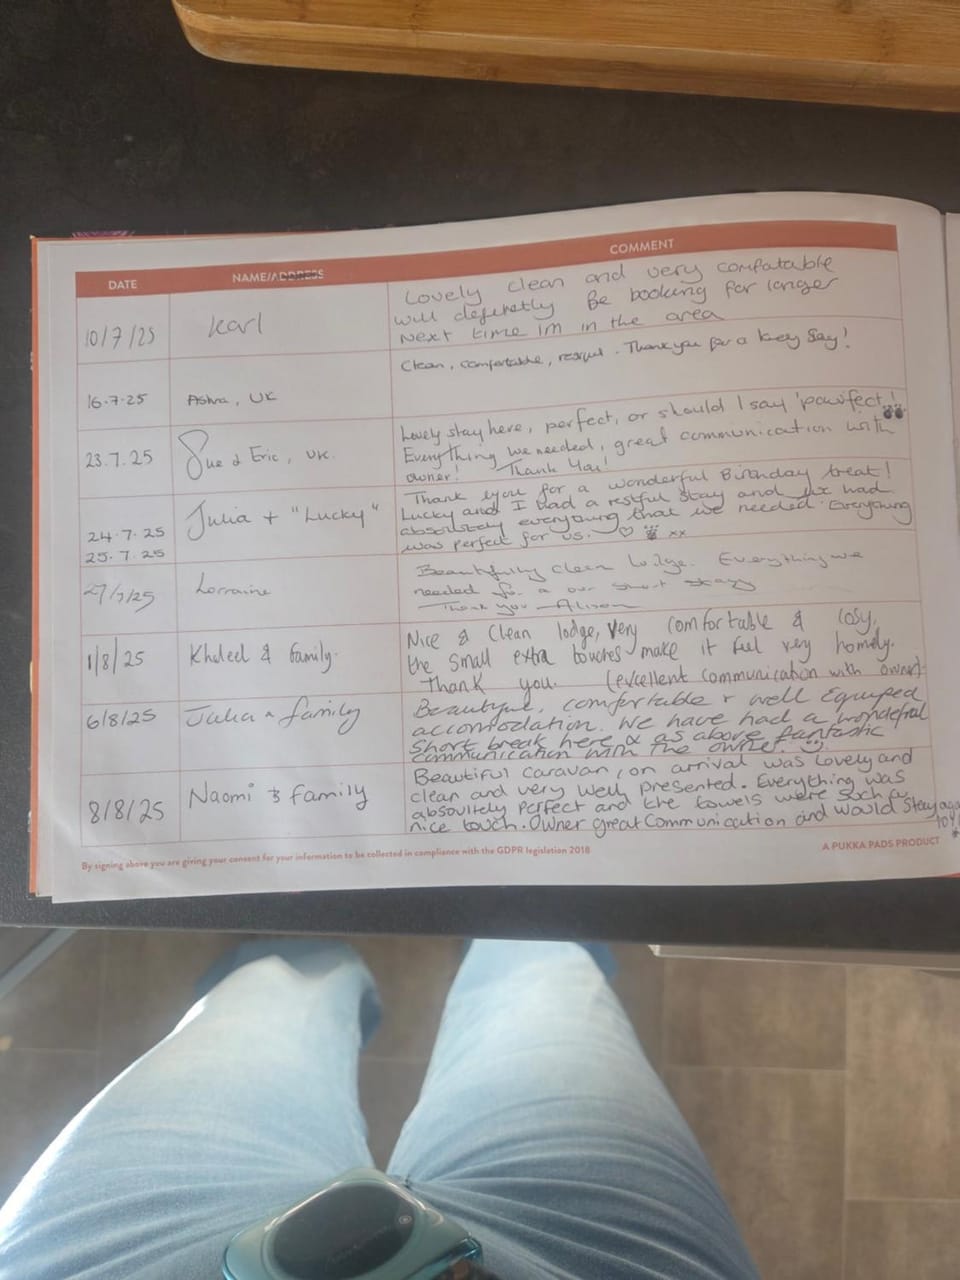 DATE NAME/ADDRESS COMMENT
10/7/25 Karl
Lovely clean and very comfatable
will defenetly Be booking for longer
Next time im in the area
16.7.25 Asha, UK
Clean, comfortable, restful. Thank you for a lovely Stay!
23.7.25 Sue & Eric, UK.
Lovely stay here, perfect, or should I say 'pawfect'!
Everything we needed, great communication with
owner! Thank You!
24.7.25
25.7.25
Julia + "Lucky"
Thank you for a wonderful Birthday treat!
Lucky and I had a restful stay and we had
absolutely everything that we needed. Everything
was perfect for us. ♡ xx
27/7/25 Lorraine
Beautifully clean lodge. Everything we
needed for a our short stay
Thank you Alison
1/8/25 Khaleel & family.
Nice & Clean lodge, very comfortable & cosy.
the small extra touches make it feel very homely.
Thank you. (excellent communication with owner).
6/8/25 Julia & family
Beautyful, comfortable & well Equiped
accomodation. We have had a wondeful
Short break here & as above fantastic
communication with the owner. ☺
8/8/25 Naomi & family
Beautiful caravan, on arrival was Lovely and
clean and very well presented. Everything was
absoultely perfect and the towels were such a
nice touch. Owner great communication and would stay again
By signing above you are giving your consent for your information to be collected in compliance with the GDPR legislation 2018
A PUKKA PADS PRODUCT